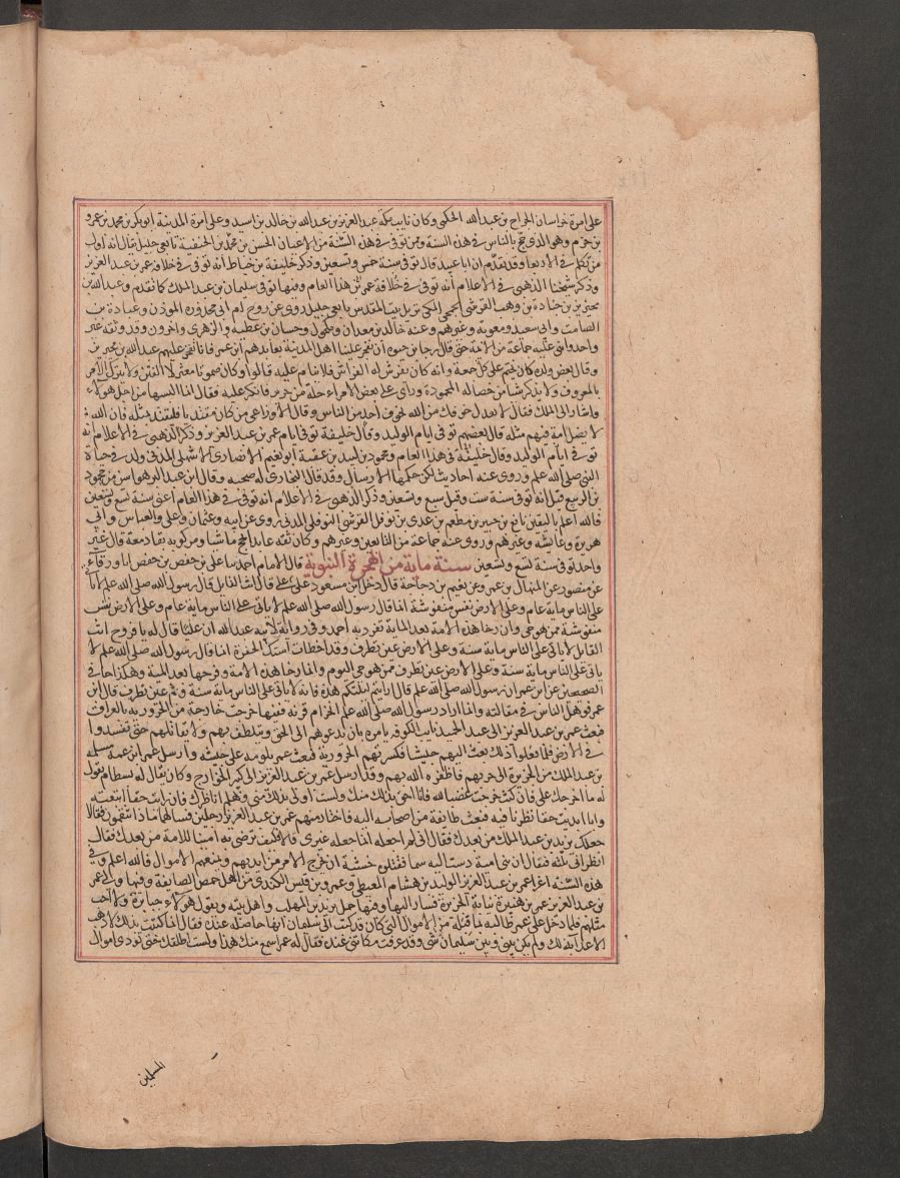 على امرة خراسان الجراح بن عبد الله الحكمي وكان نايب مكة عبد العزيز بن عبد الله بن خالد بن اسيد وعلى امرة المدينة ابو بكر بن محمد بن عمرو
بن حزم وهو الذي حج بالناس في هذه السنة وممن توفي في هذه السنة من الاعيان الحسن بن محمد بن الحنفية تابعي جليل يقال انه اول
من تكلم في الارجا وقد تقدم ان ابا عبيد قال توفي سنة خمس وتسعين وذكر خليفة بن خياط انه توفي في خلافة عمر بن عبد العزيز
وذكر شيخنا الذهبي في الاعلام انه توفي في خلافة عمر هذا العام وفيها توفي سليمان بن عبد الملك كما تقدم وعبد الله بن
محيريز بن جنادة بن وهب القرشي الجمحي المكي نزيل بيت المقدس تابعي جليل روى عن زوج ام ابي محذورة الموذن وعبادة بن
الصامت وابي سعيد ومعوية وغيرهم وعنه خالد بن معدان ومكحول وحسان بن عطية والزهري واخرون وقد وثقه غير
واحد واثنى عليه جماعة من الايمة حتى قال رجا بن حيوة ان يفخر علينا اهل المدينة بعابدهم ابن عمر فانا نفخر عليهم بعبد الله بن محيريز
وقال بعض ولده كان يختم في كل جمعة وانه كان يفرش له الفراش فلا ينام عليه قالوا وكان صموتا معتزلا للفتن ولا يترك الامر
بالمعروف ولا يذكر شيا من خصاله المحمودة وراى على بعض الامراء حلة من حرير فانكر عليه فقال انما البسها من اجل هولاء
واشار الى الملك فقال لا تعدل خوفك من الله بخوف احد من الناس وقال الاوزاعي من كان مقتديا فليقتد بمثله فان الله
لا يضل امة فيهم مثله قال بعضهم توفي ايام الوليد وقال خليفة توفي ايام عمر بن عبد العزيز وذكر الذهبي في الاعلام انه
توفي في ايام الوليد وقال خليفة في هذا العام ومحمود بن لبيد بن عقبة ابو نعيم الانصاري الاشهلي المدني ولد في حياة
النبي صلى الله عليه وسلم وروى عنه احاديث لكن حكمها الارسال وقد قال البخاري له صحبة وقال ابن عبد البر هو اسن من محمود
بن الربيع قيل انه توفي سنة ست وقيل سبع وتسعين وذكر الذهبي في الاعلام انه توفي في هذا العام اعني سنة تسع وتسعين
فالله اعلم باليقين نافع بن جبير بن مطعم بن عدي بن نوفل القرشي النوفلي المدني روى عن ابيه وعثمان وعلي والعباس وابي
هريرة وعايشة وغيرهم وروى عنه جماعة من التابعين وغيرهم وكان ثقة عابدا يحج ماشيا ومركوبه يقاد معه قال غير
واحد توفي سنة تسع وتسعين سنة ماية من الهجرة النبوية قال الامام احمد ثنا علي بن حفص انا ورقاء
عن منصور عن المنهال بن عمرو عن نعيم بن دجاجة قال دخل ابن مسعود على علي فقال انت القايل قال رسول الله صلى الله عليه وسلم لا ياتي
على الناس ماية عام وعلى الارض نفس منفوسة انما قال رسول الله صلى الله عليه وسلم لا ياتي على الناس ماية عام وعلى الارض نفس
منفوسة ممن هو حي وان رخا هذه الامة بعد الماية تفرد به احمد وفي رواية لابنه عبد الله ان عليا قال له يا فروخ انت
القايل لا ياتي على الناس ماية سنة وعلى الارض عين تطرف وقد اخطات استك الحفرة انما قال رسول الله صلى الله عليه وسلم لا
ياتي على الناس ماية سنة وعلى الارض عين تطرف ممن هو حي اليوم وانما رخا هذه الامة وفرجها بعد المية وهكذا جاء في
الصحيحين عن ابن عمر ان رسول الله صلى الله عليه وسلم قال ارايتم ليلتكم هذه فانه لا ياتي على الناس ماية سنة وفيهم عين تطرف قال ابن
عمر فوهل الناس في مقالته وانما اراد رسول الله صلى الله عليه وسلم انخرام قرنه ففيها خرجت خارجة من الحرورية بالعراق
فبعث عمر بن عبد العزيز الى عبد الحميد نايب الكوفة يامره بان يدعوهم الى الحق ويتلطف بهم ولا يقاتلهم حتى يفسدوا
في الارض فلما فعلوا ذلك بعث اليهم جيشا فكسرتهم الحرورية فبعث عمر يلومه على جيشه وارسل عمر ابن عمه مسلمة
بن عبد الملك من الجزيرة الى حربهم فاظفره الله بهم وقد ارسل عمر بن عبد العزيز الى كبير الخوارج وكان يقال له بسطام يقول
له ما اخرجك علي فان كنت خرجت غضبا لله فانا احق بذلك منك ولست اولى بذلك مني وهلم اناظرك فان رايت حقا اتبعته
وان ابديت حقا نظرنا فيه فبعث طايفة من اصحابه اليه فاختار منهم عمر بن عبد العزيز رجلين فسالهما ماذا تنقمون فقالا
جعلك يزيد بن عبد الملك من بعدك فقال اني لم اجعله انما جعله غيري قالا فكيف ترضى به امينا للامة من بعدك فقال
انظراني ثلثة فيقال ان بني امية دست اليه سما فقتلوه خشية ان يخرج الامر من ايديهم ويمنعهم الاموال فالله اعلم وفي
هذه السنة اغزا عمر بن عبد العزيز الوليد بن هشام المعيطي وعمرو بن قيس الكندي من اهل حمص الصايفة وفيها ولى عمر
بن عبد العزيز عمر بن هبيرة نيابة الجزيرة فسار اليها وفيها حمل يزيد بن المهلب واهل بيته ويقول هولاء جبابرة ولا احب
مثلهم فلما دخل على عمر طالبه بما قبله من الاموال التي كان قد كتب الى سليمان انها حاصلة عنده فقال انما كتبت بذلك لارهب
الاعدا به لك ولم يكن بيني وبين سليمان شي وقد عرفت مكانتي عنده فقال له عمر اسمع منك هذا ولست اطلقك حتى تودي اموال
المسلمين